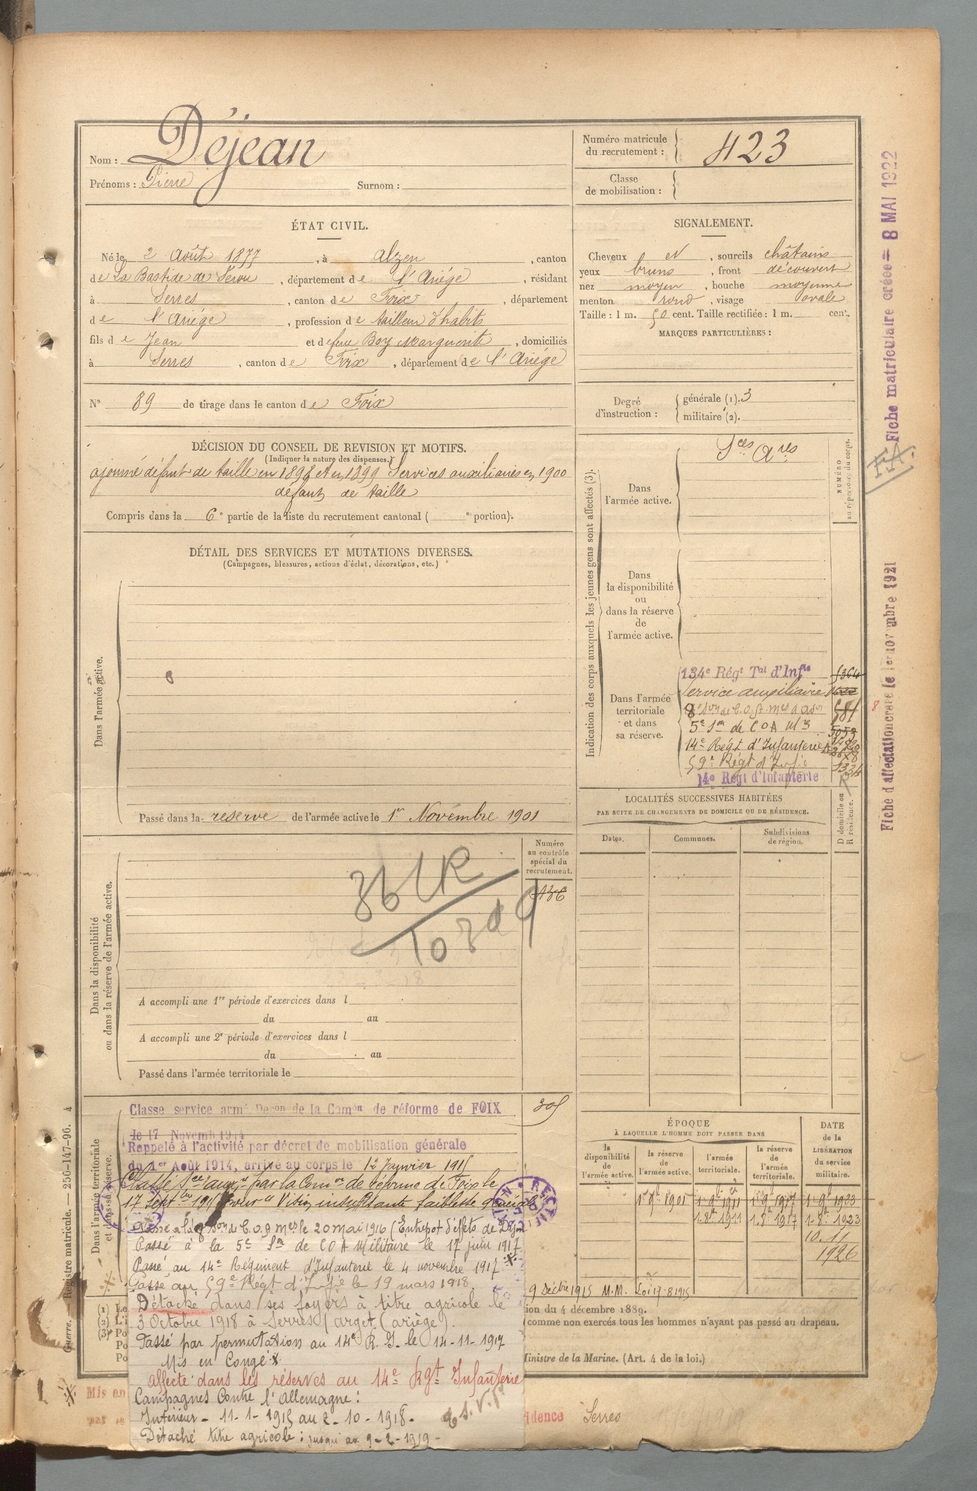 Nom : Déjean
Prénoms : Pierre Surnom :
Numéro matricule du recrutement : 423
Classe de mobilisation :
ÉTAT CIVIL.
Né le 2 Août 1877, à Alzen, canton
de La Bastide de Serou, département de l'Ariège, résidant
à Serres, canton de Foix, département
de l'Ariège, profession de tailleur d'habits
fils de Jean et de feue Boy Marguerite, domiciliés
à Serres, canton de Foix, département de l'Ariège
N° 89 de tirage dans le canton de Foix
SIGNALEMENT.
Cheveux N, sourcils châtains
yeux bruns, front découvert
nez moyen, bouche moyenne
menton rond, visage ovale
Taille : 1 m. 50 cent. Taille rectifiée : 1 m. cent.
MARQUES PARTICULIÈRES :
Degré d'instruction : générale (1). 3
militaire (2).
DÉCISION DU CONSEIL DE REVISION ET MOTIFS.
(Indiquer la nature des dispenses.)
ajourné défaut de taille en 1898 et en 1899 Services auxiliaires en 1900
défaut de taille
Compris dans la 6e partie de la liste du recrutement cantonal ( e portion).
DÉTAIL DES SERVICES ET MUTATIONS DIVERSES.
(Campagnes, blessures, actions d'éclat, décorations, etc.)
Dans l'armée active.
Passé dans la reserve de l'armée active le 1er Novembre 1901
Indication des corps auxquels les jeunes gens sont affectés (3).
NUMÉRO au répertoire du corps.
Sces Ares
Dans l'armée active.
Dans la disponibilité ou dans la réserve de l'armée active.
Dans l'armée territoriale et dans sa réserve.
134e Régt Tal d'Infie
Service auxiliaire
5e Son de COA M
14e Régt d'Infanterie
59e Régt d'Infie
14e Régt d'Infanterie
LOCALITÉS SUCCESSIVES HABITÉES
PAR SUITE DE CHANGEMENTS DE DOMICILE OU DE RÉSIDENCE.
Dates. Communes. Subdivisions de région.
D domicile ou R résidence.
Dans la disponibilité ou dans la réserve de l'armée active.
Numéro au contrôle spécial du recrutement.
A accompli une 1re période d'exercices dans l
du au
A accompli une 2e période d'exercices dans l
du au
Passé dans l'armée territoriale le
Dans l'armée territoriale et dans sa réserve.
Classe service armé Décon de la Comon de réforme de FOIX
305
le 17 Novemb 1914
Rappelé à l'activité par décret de mobilisation générale
du 1er Août 1914, arrivé au corps le 12 Janvier 1915
Classé Sce auxre par la Comon de réforme de Foix le
17 Septbre 1915 pour Vision insuffisante faiblesse générale
Passé à la 5e Son de COA Militaire le 17 juin 1917
Passé au 14e Régiment d'Infanterie le 4 novembre 1917
Passé au 59e Régt d'Infie le 19 mars 1918
Détaché dans ses foyers à titre agricole le
3 Octobre 1918 à Serres s/arget (ariège).
Passé par permutation au 14e R.I. le 14-11-1917
Mis en Congé
Affecté dans les réserves au 14e Régt Infanterie
Campagnes Contre l'Allemagne :
Intérieur - 11-1-1915 au 2-10-1918 -
Détaché titre agricole : jusqu'au 9-2-1919 -
T.S.V.P.
ÉPOQUE
À LAQUELLE L'HOMME DOIT PASSER DANS
la disponibilité de l'armée active.
la réserve de l'armée active.
l'armée territoriale.
la réserve de l'armée territoriale.
DATE de la LIBÉRATION du service militaire.
1er 9bre 1901
1-8bre 1911 1-8e 1917 1-8e 1923
10.11
1926
9 Décbre 1915 M.M. Loi 17-8-1915
ion du 4 décembre 1889.
comme non exercés tous les hommes n'ayant pas passé au drapeau.
Ministre de la Marine. (Art. 4 de la loi.)
Mis en
idence Serres
Guerre. — Registre matricule. — 256-147-96.
Fiche matriculaire créée = 8 MAI 1922
F.A.
Fiche d'affectation créée le 1er novembre 1921